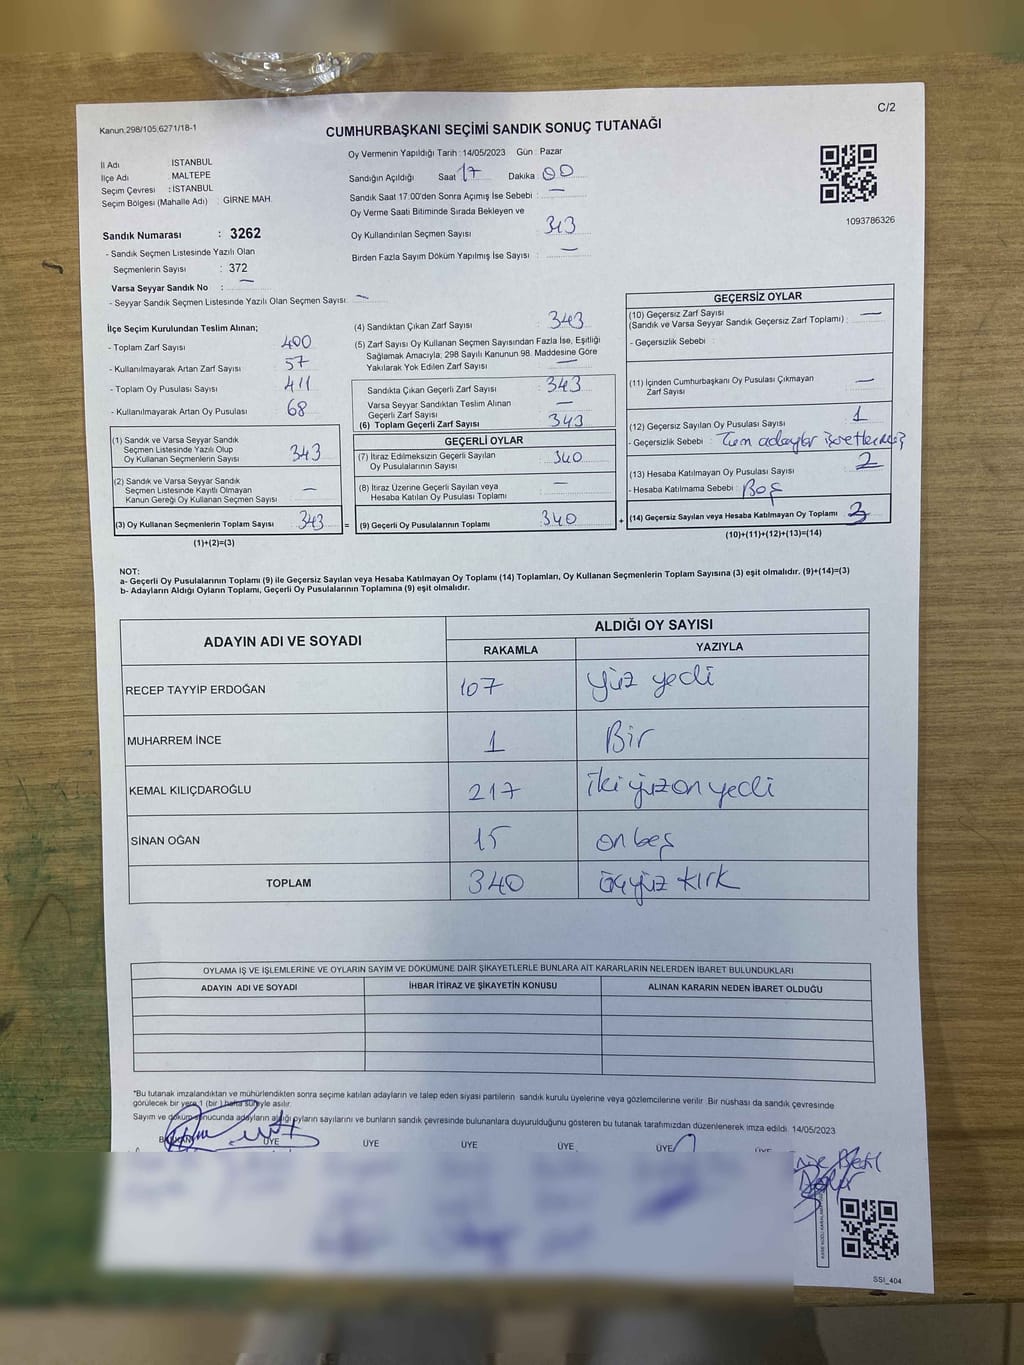 C/2
Kanun.298/105;6271/18-1
CUMHURBAŞKANI SEÇİMİ SANDIK SONUÇ TUTANAĞI
İl Adı : İSTANBUL
İlçe Adı : MALTEPE
Seçim Çevresi : İSTANBUL
Seçim Bölgesi (Mahalle Adı) : GİRNE MAH.
Sandık Numarası : 3262
- Sandık Seçmen Listesinde Yazılı Olan
Seçmenlerin Sayısı : 372
Varsa Seyyar Sandık No : —
- Seyyar Sandık Seçmen Listesinde Yazılı Olan Seçmen Sayısı: —
Oy Vermenin Yapıldığı Tarih : 14/05/2023 Gün : Pazar
Sandığın Açıldığı Saat : 17 Dakika : 00
Sandık Saat 17:00'den Sonra Açımış İse Sebebi : —
Oy Verme Saati Bitiminde Sırada Bekleyen ve
Oy Kullandırılan Seçmen Sayısı : 343
Birden Fazla Sayım Döküm Yapılmış İse Sayısı : —
1093786326
İlçe Seçim Kurulundan Teslim Alınan;
- Toplam Zarf Sayısı : 400
- Kullanılmayarak Artan Zarf Sayısı : 57
- Toplam Oy Pusulası Sayısı : 411
- Kullanılmayarak Artan Oy Pusulası : 68
(1) Sandık ve Varsa Seyyar Sandık
Seçmen Listesinde Yazılı Olup
Oy Kullanan Seçmenlerin Sayısı : 343
(2) Sandık ve Varsa Seyyar Sandık
Seçmen Listesinde Kayıtlı Olmayan
Kanun Gereği Oy Kullanan Seçmen Sayısı : —
(3) Oy Kullanan Seçmenlerin Toplam Sayısı : 343 =
(1)+(2)=(3)
(4) Sandıktan Çıkan Zarf Sayısı : 343
(5) Zarf Sayısı Oy Kullanan Seçmen Sayısından Fazla İse, Eşitliği
Sağlamak Amacıyla, 298 Sayılı Kanunun 98. Maddesine Göre
Yakılarak Yok Edilen Zarf Sayısı : —
Sandıkta Çıkan Geçerli Zarf Sayısı : 343
Varsa Seyyar Sandıktan Teslim Alınan
Geçerli Zarf Sayısı : —
(6) Toplam Geçerli Zarf Sayısı : 343
GEÇERLİ OYLAR
(7) İtiraz Edilmeksizin Geçerli Sayılan
Oy Pusulalarının Sayısı : 340
(8) İtiraz Üzerine Geçerli Sayılan veya
Hesaba Katılan Oy Pusulası Toplamı : —
(9) Geçerli Oy Pusulalarının Toplamı : 340 +
GEÇERSİZ OYLAR
(10) Geçersiz Zarf Sayısı
(Sandık ve Varsa Seyyar Sandık Geçersiz Zarf Toplamı) : —
- Geçersizlik Sebebi :
(11) İçinden Cumhurbaşkanı Oy Pusulası Çıkmayan
Zarf Sayısı : —
(12) Geçersiz Sayılan Oy Pusulası Sayısı : 1
- Geçersizlik Sebebi : Tüm adaylar işaretlenmiş
(13) Hesaba Katılmayan Oy Pusulası Sayısı : 2
- Hesaba Katılmama Sebebi : Boş
(14) Geçersiz Sayılan veya Hesaba Katılmayan Oy Toplamı : 3
(10)+(11)+(12)+(13)=(14)
NOT:
a- Geçerli Oy Pusulalarının Toplamı (9) ile Geçersiz Sayılan veya Hesaba Katılmayan Oy Toplamı (14) Toplamları, Oy Kullanan Seçmenlerin Toplam Sayısına (3) eşit olmalıdır. (9)+(14)=(3)
b- Adayların Aldığı Oyların Toplamı, Geçerli Oy Pusulalarının Toplamına (9) eşit olmalıdır.
ADAYIN ADI VE SOYADI
ALDIĞI OY SAYISI
RAKAMLA YAZIYLA
RECEP TAYYİP ERDOĞAN 107 yüz yedi
MUHARREM İNCE 1 Bir
KEMAL KILIÇDAROĞLU 217 İki yüz on yedi
SİNAN OĞAN 15 on beş
TOPLAM 340 üçyüz kırk
OYLAMA İŞ VE İŞLEMLERİNE VE OYLARIN SAYIM VE DÖKÜMÜNE DAİR ŞİKAYETLERLE BUNLARA AİT KARARLARIN NELERDEN İBARET BULUNDUKLARI
ADAYIN ADI VE SOYADI İHBAR İTİRAZ VE ŞİKAYETİN KONUSU ALINAN KARARIN NEDEN İBARET OLDUĞU
*Bu tutanak imzalandıktan ve mühürlendikten sonra seçime katılan adayların ve talep eden siyasi partilerin sandık kurulu üyelerine veya gözlemcilerine verilir. Bir nüshası da sandık çevresinde
görülecek bir yere 1 (bir ) hafta süreyle asılır.
Sayım ve döküm sonucunda adayların aldığı oyların sayılarını ve bunların sandık çevresinde bulunanlara duyurulduğunu gösteren bu tutanak tarafımızdan düzenlenerek imza edildi. 14/05/2023
BAŞKAN ÜYE ÜYE ÜYE ÜYE ÜYE ÜYE
SSİ_404